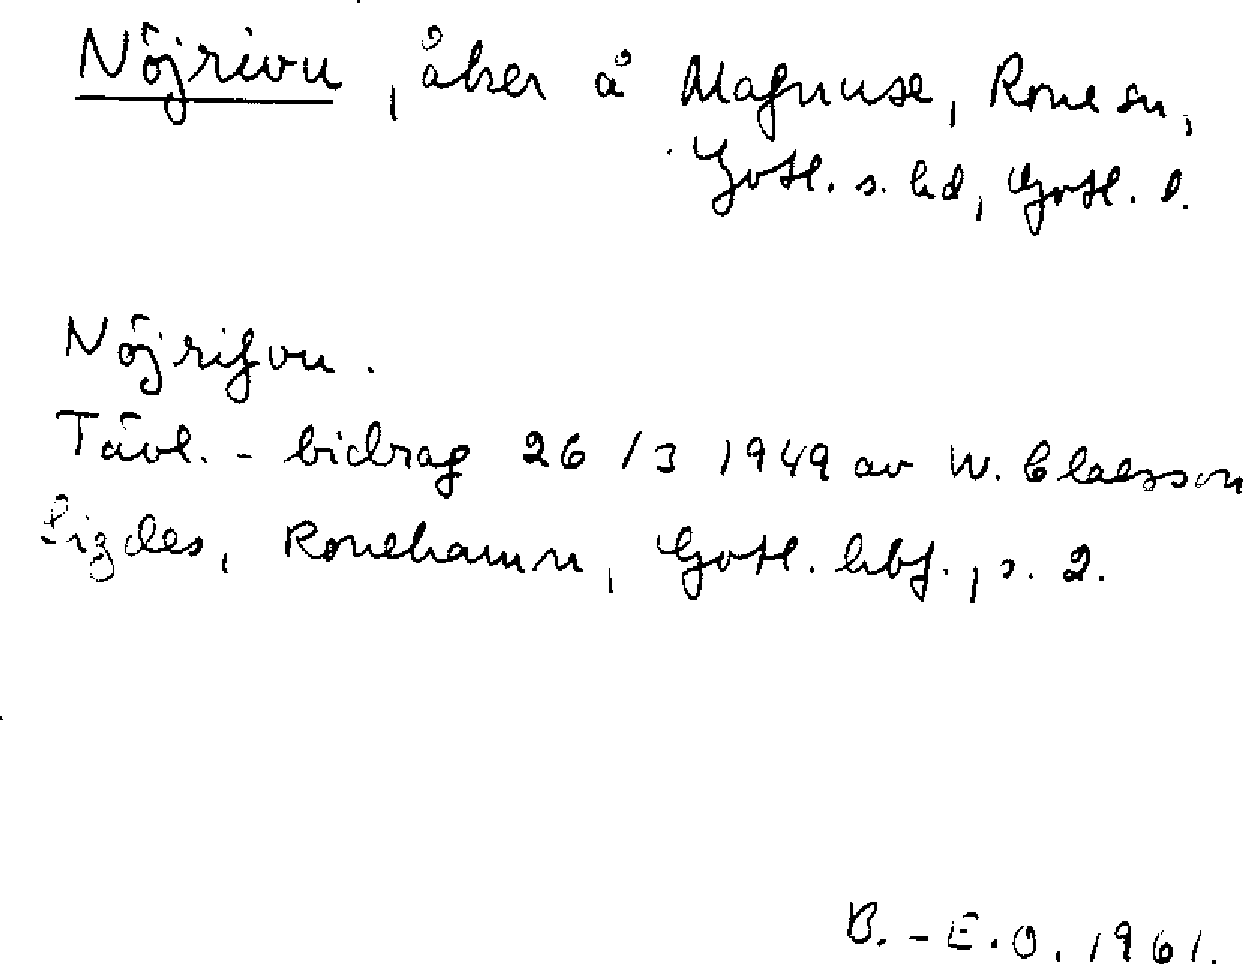 Nöjrivu, åker å Magnuse, Rone sn,
Gotl. s. hd, Gotl. l.
Nöjrifvu.
Tävl. - bidrag 26/3 1949 av W. Claesson
Sigdes, Ronehamn, Gotl. hbf., s. 2.
B. - E. O. 1961.